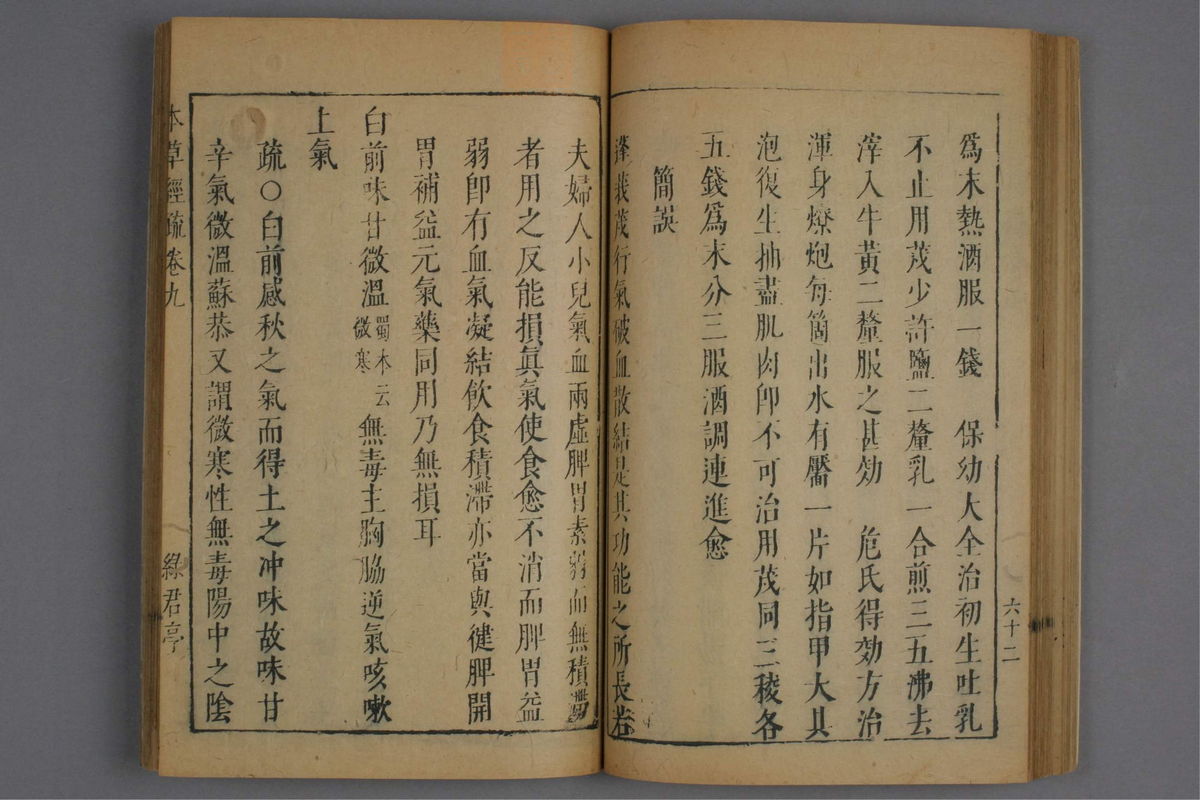 爲末熱酒服一錢　保幼大全治初生吐乳
不止用茂少許鹽二釐乳一合煎三五沸去
滓入牛黃二釐服之甚効　危氏得効方治
渾身燎炮每箇出水有靨一片如指甲大其
泡復生抽盡肌肉卽不可治用茂同三稜各
五錢爲末分三服酒調連進愈
簡誤
蓬莪茂行氣破血散結是其功能之所長若
六十二
夫婦人小兒氣血兩虛脾胃素弱而無積滯
者用之反能損眞氣使食愈不消而脾胃益
弱卽有血氣凝結飲食積滯亦當與健脾開
胃補益元氣藥同用乃無損耳
白前味甘微溫蜀本云微寒無毒主胸脇逆氣咳嗽
上氣
疏○白前感秋之氣而得土之冲味故味甘
辛氣微溫蘇恭又謂微寒性無毒陽中之陰
本草經疏卷九
綠君亭